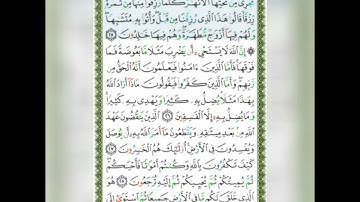 تَجْرِى مِن تَحْتِهَا ٱلْأَنْهَٰرُ كُلَّمَا رُزِقُوا۟ مِنْهَا مِن ثَمَرَةٍ
رِّزْقًا قَالُوا۟ هَٰذَا ٱلَّذِى رُزِقْنَا مِن قَبْلُ وَأُتُوا۟ بِهِۦ مُتَشَٰبِهًا
وَلَهُمْ فِيهَآ أَزْوَٰجٌ مُّطَهَّرَةٌ وَهُمْ فِيهَا خَٰلِدُونَ ٢٥
إِنَّ ٱللَّهَ لَا يَسْتَحْىِۦٓ أَن يَضْرِبَ مَثَلًا مَّا بَعُوضَةً فَمَا
فَوْقَهَا فَأَمَّا ٱلَّذِينَ ءَامَنُوا۟ فَيَعْلَمُونَ أَنَّهُ ٱلْحَقُّ مِن
رَّبِّهِمْ وَأَمَّا ٱلَّذِينَ كَفَرُوا۟ فَيَقُولُونَ مَاذَآ أَرَادَ ٱللَّهُ
بِهَٰذَا مَثَلًا يُضِلُّ بِهِۦ كَثِيرًا وَيَهْدِى بِهِۦ كَثِيرًا
وَمَا يُضِلُّ بِهِۦٓ إِلَّا ٱلْفَٰسِقِينَ ٢٦ ٱلَّذِينَ يَنقُضُونَ عَهْدَ
ٱللَّهِ مِنۢ بَعْدِ مِيثَٰقِهِۦ وَيَقْطَعُونَ مَآ أَمَرَ ٱللَّهُ بِهِۦٓ أَن يُوصَلَ
وَيُفْسِدُونَ فِى ٱلْأَرْضِ أُو۟لَٰٓئِكَ هُمُ ٱلْخَٰسِرُونَ ٢٧
كَيْفَ تَكْفُرُونَ بِٱللَّهِ وَكُنتُمْ أَمْوَٰتًا فَأَحْيَٰكُمْ
ثُمَّ يُمِيتُكُمْ ثُمَّ يُحْيِيكُمْ ثُمَّ إِلَيْهِ تُرْجَعُونَ ٢٨ هُوَ
ٱلَّذِى خَلَقَ لَكُم مَّا فِى ٱلْأَرْضِ جَمِيعًا ثُمَّ ٱسْتَوَىٰٓ إِلَى